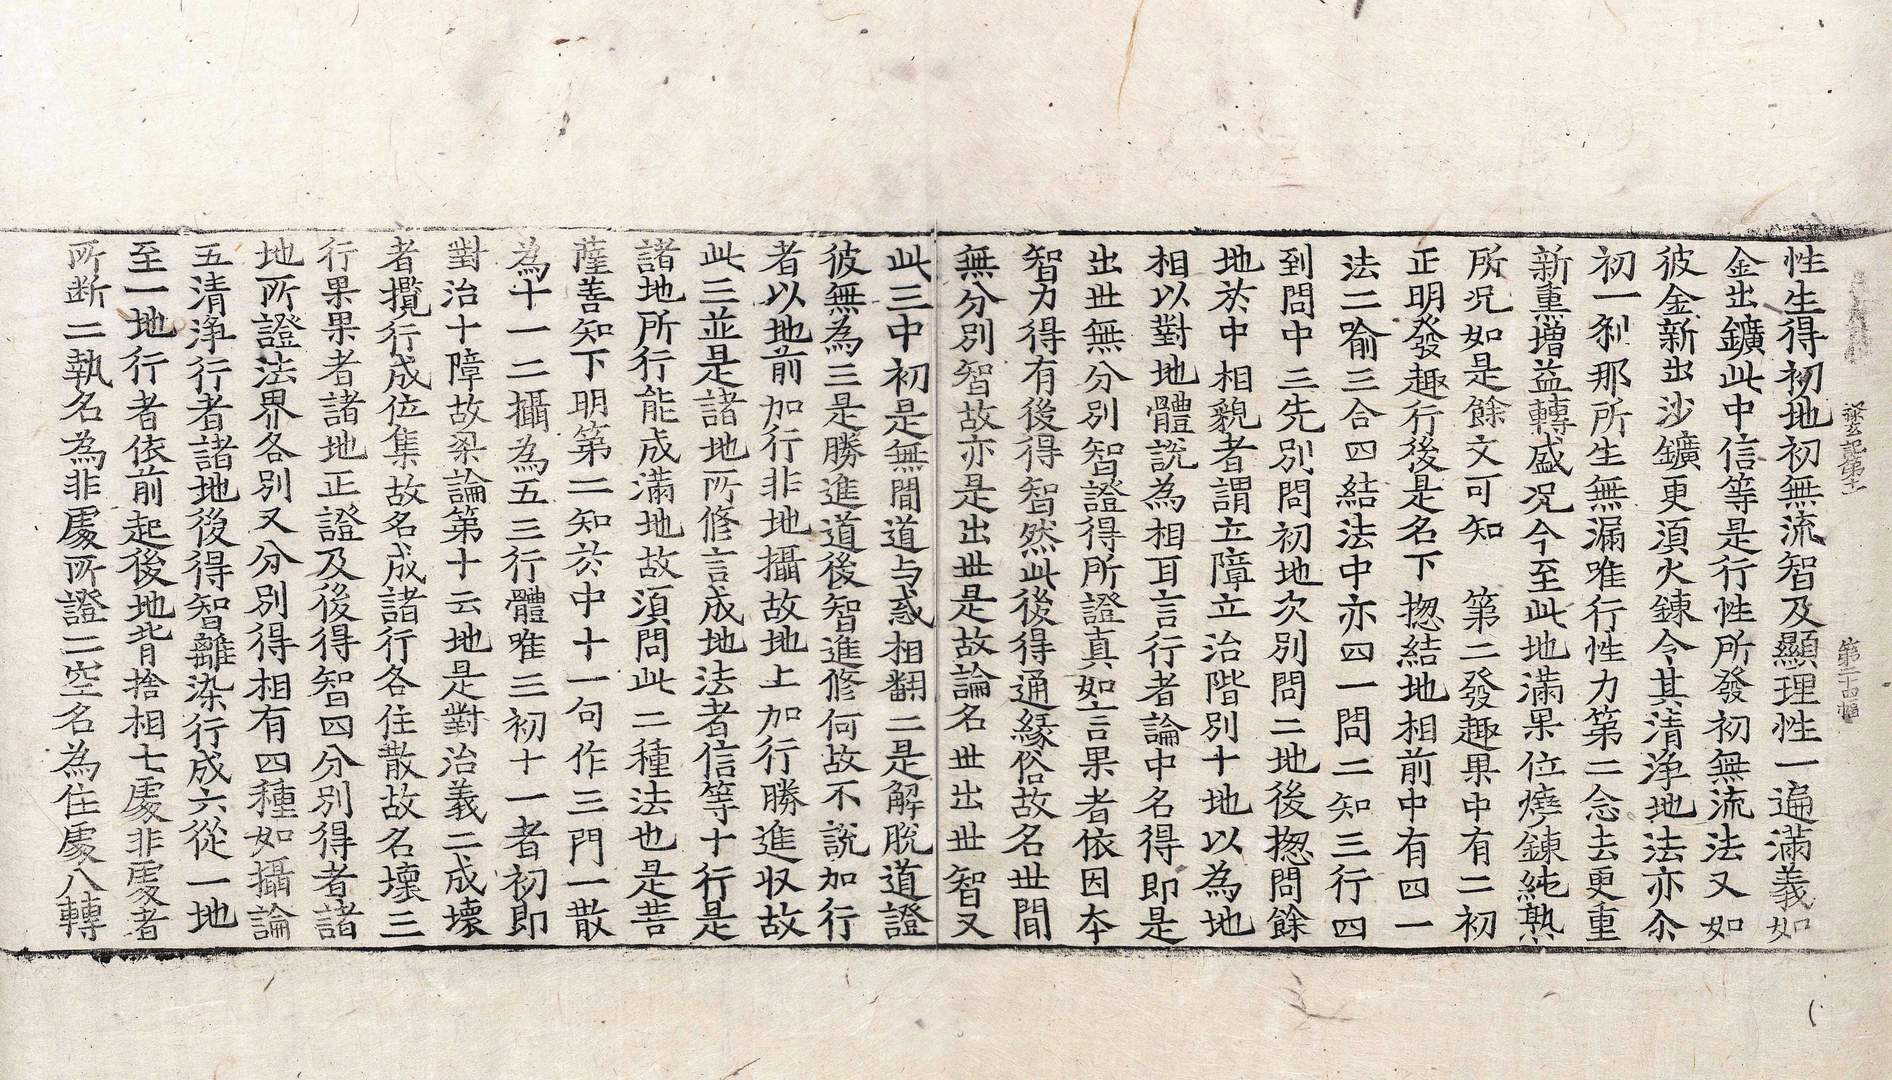 發玄記第十 第二十四幅
性生得初地初無流智及顯理性一遍滿義如
金出鑛此中信等是行性所發初無流法又如
彼金新出沙鑛更湏火鍊令其清淨地法亦尒
初一刹那所生無漏唯行性力第二念去更重
新熏增益轉盛况今至此地滿果位燒鍊純熟
所况如是餘文可知　第二發趣果中有二初
正明發趣行後是名下揔結地相前中有四一
法二喻三合四結法中亦四一問二知三行四
到問中三先別問初地次別問二地後揔問餘
地於中相貌者謂立障立治階別十地以為地
相以對地體說為相耳言行者論中名得即是
出世無分別智證得所證真如言果者依因本
智力得有後得智然此後得通緣俗故名世間
無分別智故亦是出世是故論名世出世智又
此三中初是無間道与惑相翻二是解脫道證
彼無為三是勝進道後智進修何故不說加行
者以地前加行非地攝故地上加行勝進収故
此三並是諸地所修言成地法者信等十行是
諸地所行能成滿地故湏問此二種法也是菩
薩善知下明第二知於中十一句作三門一散
為十一二攝為五三行體唯三初十一者初即
對治十障故梁論第十云地是對治義二成壞
者攬行成位集故名成諸行各住散故名壞三
行果果者諸地正證及後得智四分別得者諸
地所證法界各別又分別得相有四種如攝論
五清淨行者諸地後得智離染行成六從一地
至一地行者依前起後地背捨相七處非處者
所断二執名為非處所證二空名為住處八轉